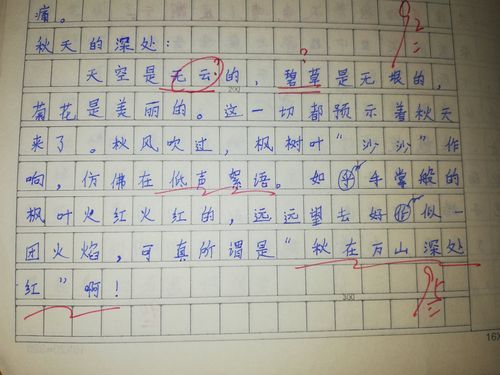 痛。
92
秋天的深处：
天空是无云?的，碧草?是无根的，
200
菊花是美丽的。这一切都预示着秋天
来了。秋风吹过，枫树叶“沙沙”作
响，仿佛在低声絮语。如手掌般的
枫叶火红火红的，远远望去好似一
团火焰，可真所谓是“秋在万山深处
红”啊！
95
300